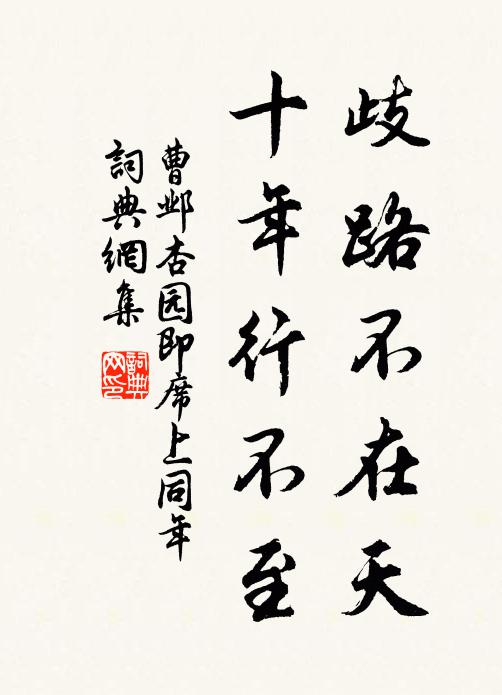 歧路不在天
十年行不至
曹邺杏园即席上同年
詞典網集
詞典网印